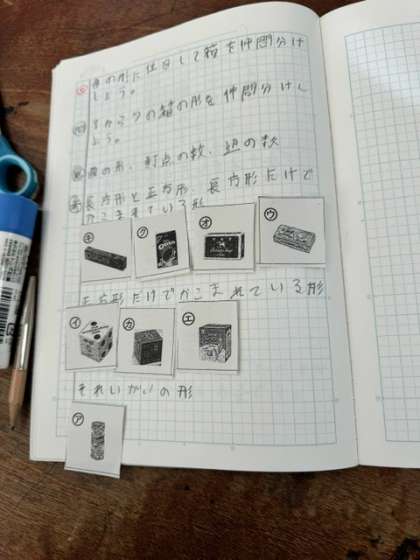 面の形に注目して箱を仲間分け
しよう。
アからクの箱の形を仲間分けし
よう。
面の形、頂点の数、辺の数
長方形と正方形、長方形だけで
かこまれている形
キ ク オ ウ
正方形だけでかこまれている形
イ カ エ
それいがいの形
ア